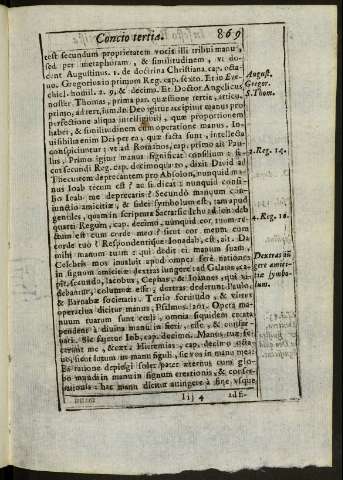 Concio tertia. 869
test secundum proprietatem vocis illi tribui manus,
sed per metaphoram, & similitudinem, vt do-
cent Augustinus. 1. de doctrina Christiana cap. octa-
uo. Gregorius in primum Reg. cap. sexto. Et in Eze-
chiel. homil. 2. 9, & decimo. Et Doctor Angelicus
noster Thomas, prima par. quæstione tertia, articu.
primo, ad tertium. In Deo igitur accipitur manus pro
perfectione aliqua intelligibili, quæ proportionem
habet, & similitudinem cum operatione manus. In-
uisibilia enim Dei per ea, quæ facta sunt, intellecta
conspiciuntur: vt ad Romanos, cap. primo ait Pau-
lus. Primo igitur manus significat consilium: si-
cut secundi Reg. cap. decimoquarto, dixit Dauid ad
Thecuitem deprecantem pro Absolon, nunquid ma-
nus Ioab tecum est? ac si dicat: nunquid consi-
lio Ioab me deprecaris? Secundò manuum con-
iunctio amicitiæ, & fidei symbolum est, tam apud
gentiles, quam in scriptura
quarti Regum, cap. decimo, nunquid cor tuum re-
ctum est cum corde meo sicut cor meum cum
corde tuo? Responditque Ionadab, est, ait. Da
mihi manum tuam: qui dedit ei manum suam.
Celebris mos inualuit apud omnes ferè nationes
in signum amicitiæ dextras iungere: ad Galatas ca-
pit. secundo, Iacobus, Cephas, & Ioannes, qui vi-
debantur, columnæ esse: dextras dederunt Paulo,
& Barnabæ societatis. Tertio fortitudo, & virtus
operatiua dicitur manus, Psalmus. 101. Opera ma-
nuum tuarum sunt cæli, omnia siquidem creata
pendent à diuina manu in fieri, esse, & conser-
uari. Sic fatetur Iob, cap. decimo. Manus tuæ fe-
cerunt me, &cæt. Hieremias, cap. decimo octa-
uo, sicut lutum in manu figuli, sic vos in manu mea:
Ea ratione depingi solet pater æternus cum glo-
bo mundi in manu in signum creationis, & conser-
uationis: hac manu dicitur attingere à fine, vsque
Iij 4 ad fi-
August.
Gregor.
S. Thom.
2. Reg. 14.
4. Reg. 10.
Dextras iũ
gere amici-
tiæ symbo-
lum.